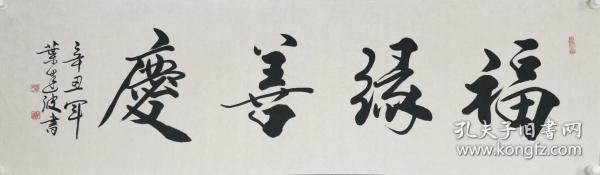 福緣善慶
辛丑年
葉建波書
孔夫子旧书网
www.kongfz.com